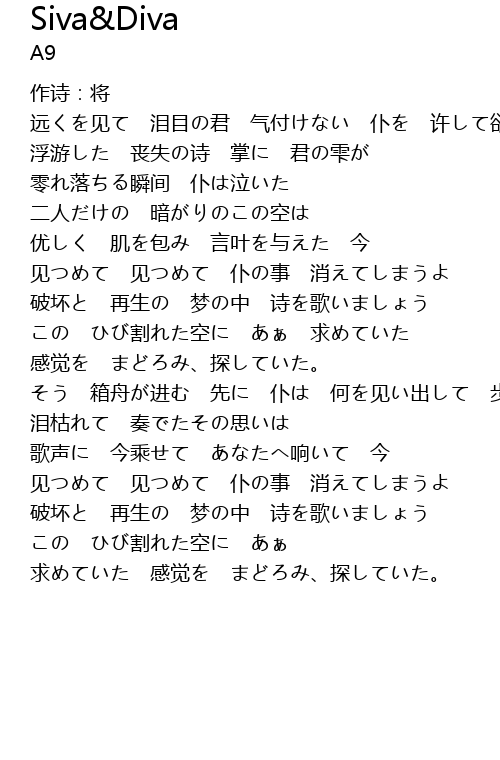 Siva&Diva
A9
作诗：将
远くを见て　泪目の君　气付けない　仆を　许して
浮游した　丧失の诗　掌に　君の雫が
零れ落ちる瞬间　仆は泣いた
二人だけの　暗がりのこの空は
优しく　肌を包み　言叶を与えた　今
见つめて　见つめて　仆の事　消えてしまうよ
破坏と　再生の　梦の中　诗を歌いましょう
この　ひび割れた空に　あぁ　求めていた
感觉を　まどろみ、探していた。
そう　箱舟が进む　先に　仆は　何を见い出して
泪枯れて　奏でたその思いは
歌声に　今乘せて　あなたへ响いて　今
见つめて　见つめて　仆の事　消えてしまうよ
破坏と　再生の　梦の中　诗を歌いましょう
この　ひび割れた空に　あぁ
求めていた　感觉を　まどろみ、探していた。